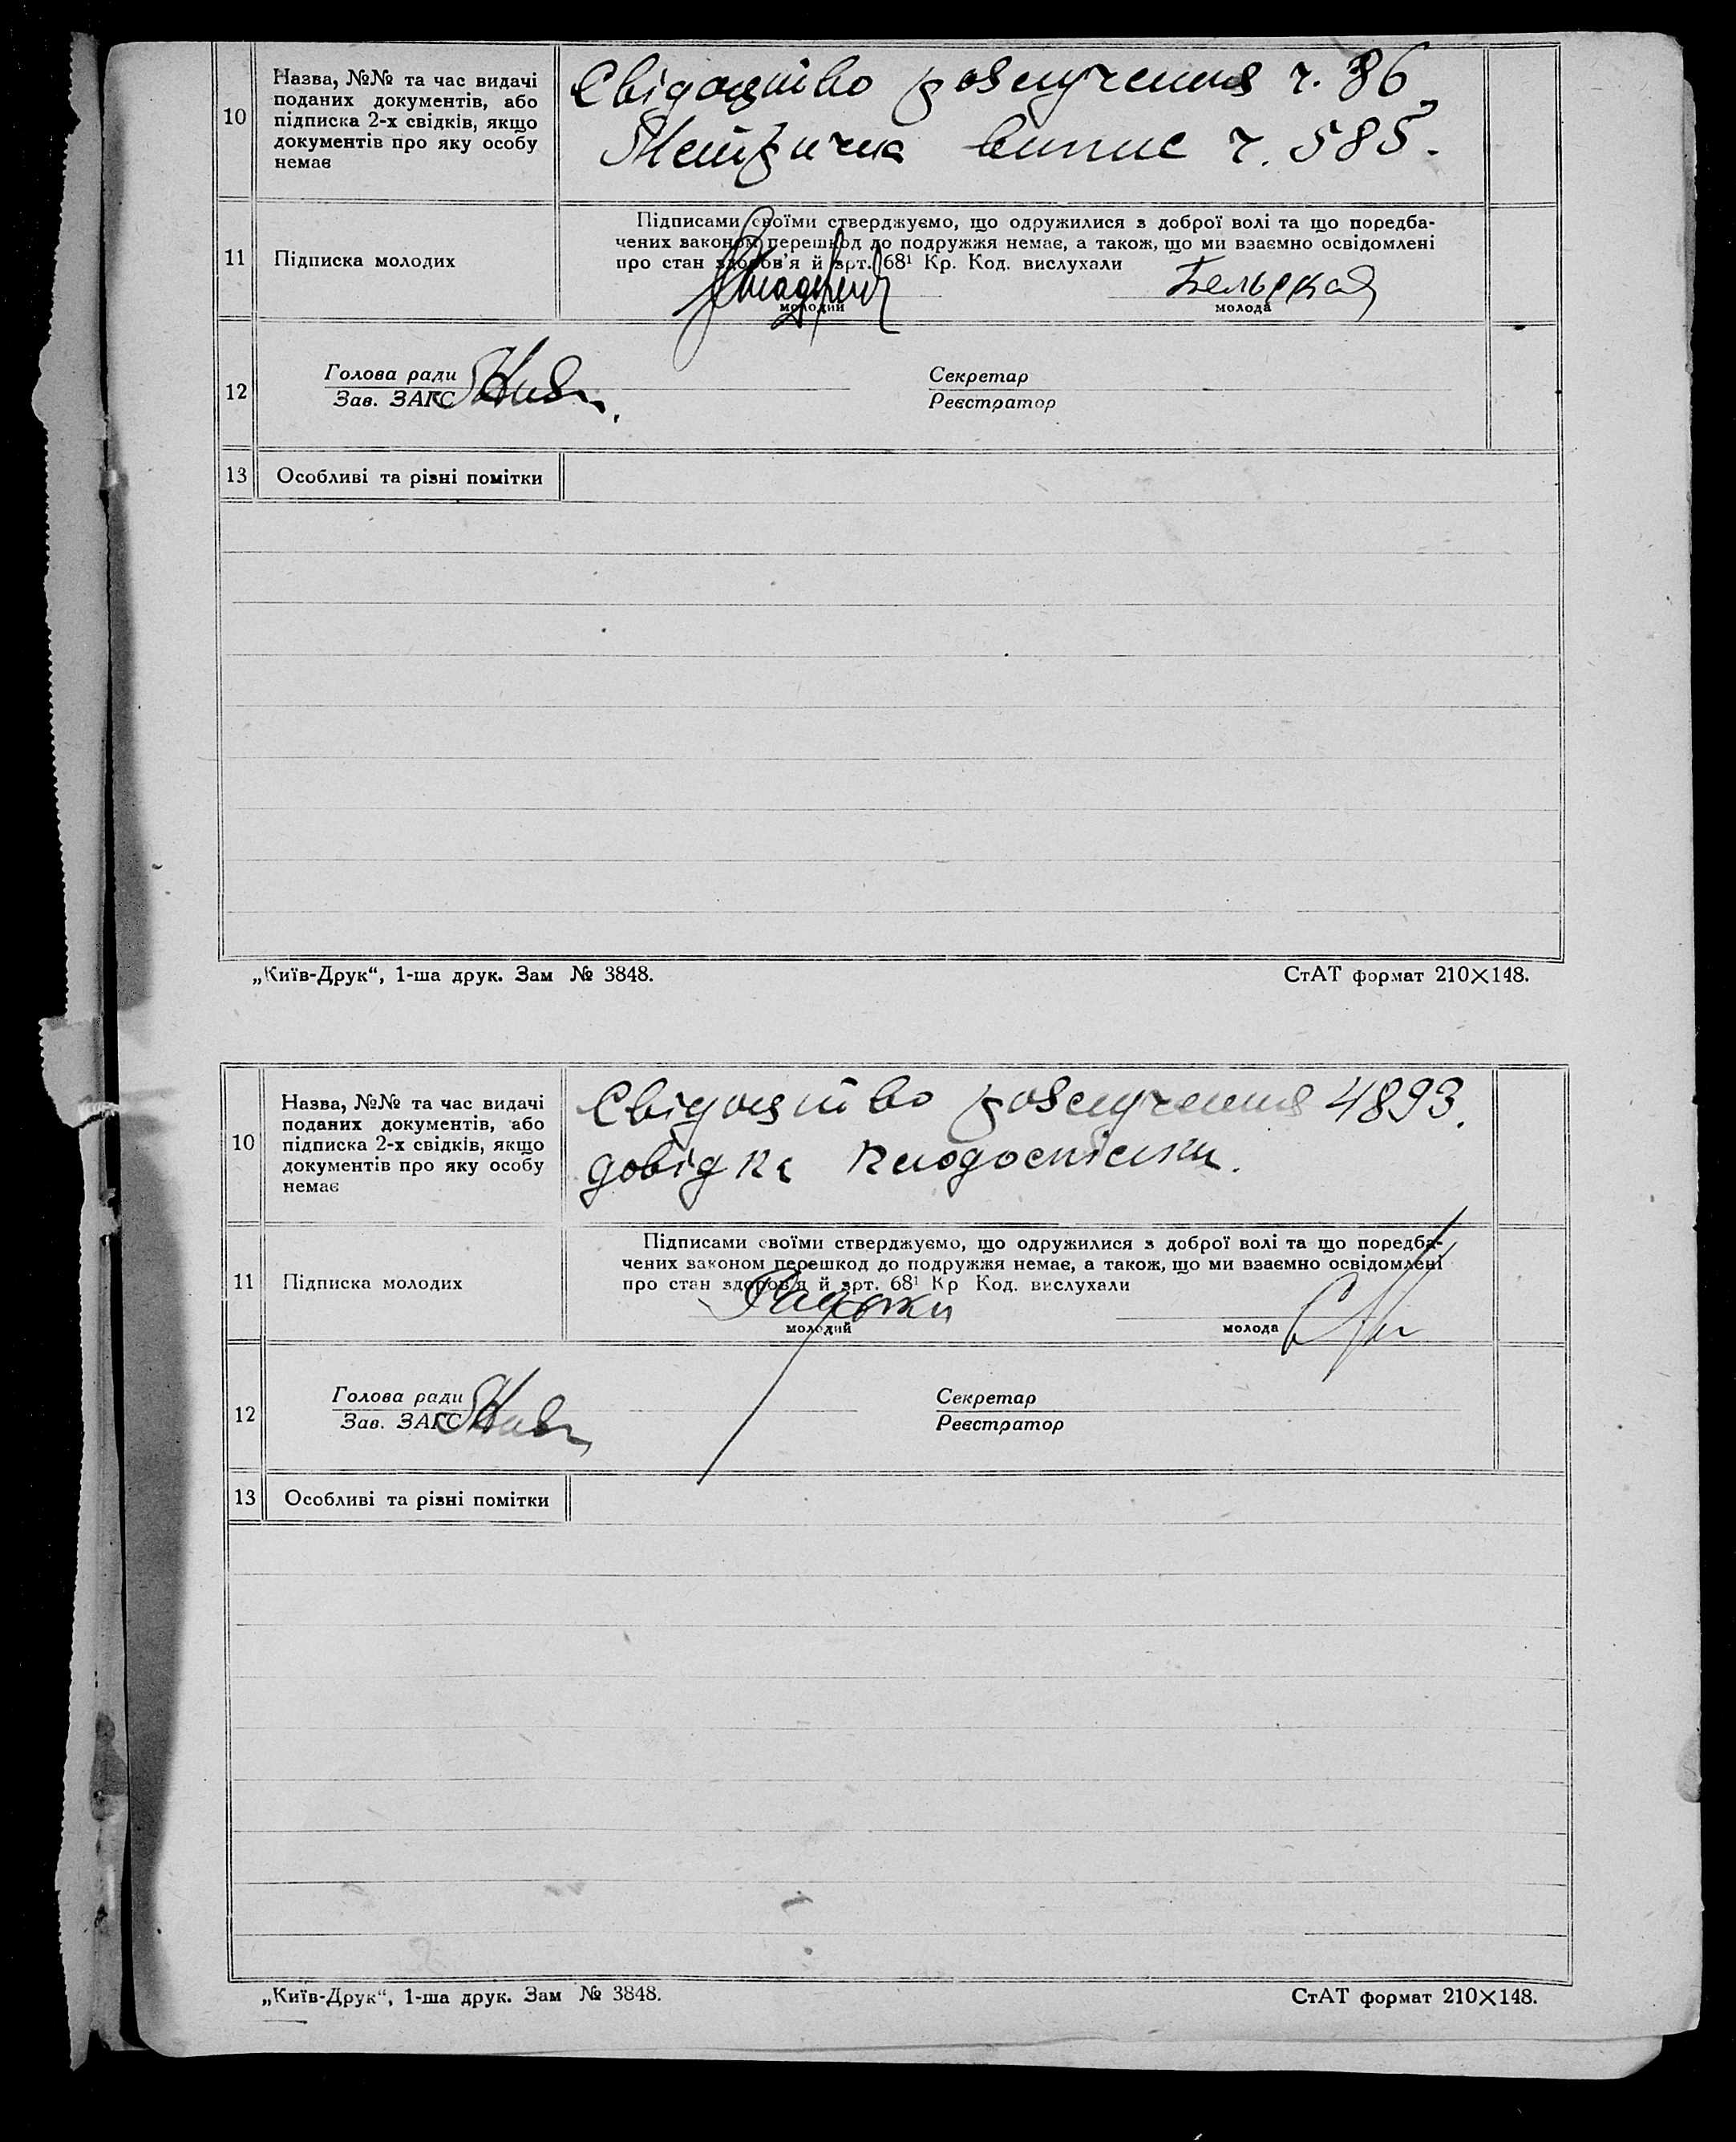 10
Назва, №№ та час видачі
поданих документів, або
підписка 2-х свідків, якщо
документів про яку особу
немає
Свідоцтво розлучення ч. 86
Метрична випис ч. 585.
11
Підписка молодих
Підписами своїми стверджуємо, що одружилися з доброї волі та що поредба-
чених законом перешкод до подружжя немає, а також, що ми взаємно освідомлені
про стан здоров'я й арт. 68¹ Кр. Код. вислухали
Бельская
молодий
молода
12
Голова ради
Зав. ЗАГС
Секретар
Реєстратор
13
Особливі та різні помітки
„Київ-Друк“, 1-ша друк. Зам № 3848.
СтАТ формат 210×148.
10
Назва, №№ та час видачі
поданих документів, або
підписка 2-х свідків, якщо
документів про яку особу
немає
Свідоцтво розлучення 4893.
довідка
11
Підписка молодих
Підписами своїми стверджуємо, що одружилися з доброї волі та що поредба-
чених законом перешкод до подружжя немає, а також, що ми взаємно освідомлені
про стан здоров'я й арт. 68¹ Кр Код. вислухали
молодий
молода
12
Голова ради
Зав. ЗАГС
Секретар
Реєстратор
13
Особливі та різні помітки
„Київ-Друк“, 1-ша друк. Зам № 3848.
СтАТ формат 210×148.